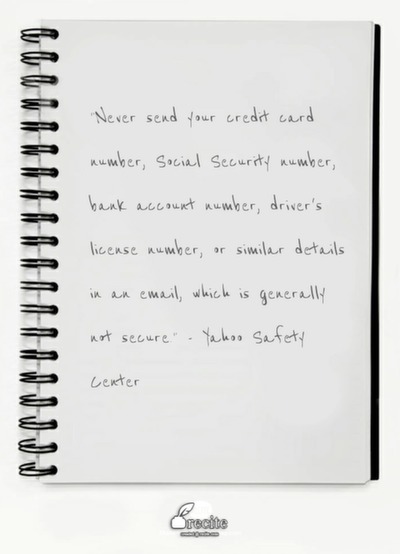 "Never send your credit card
number, Social Security number,
bank account number, driver's
license number, or similar details
in an email, which is generally
not secure" - Yahoo Safety
Center
recite